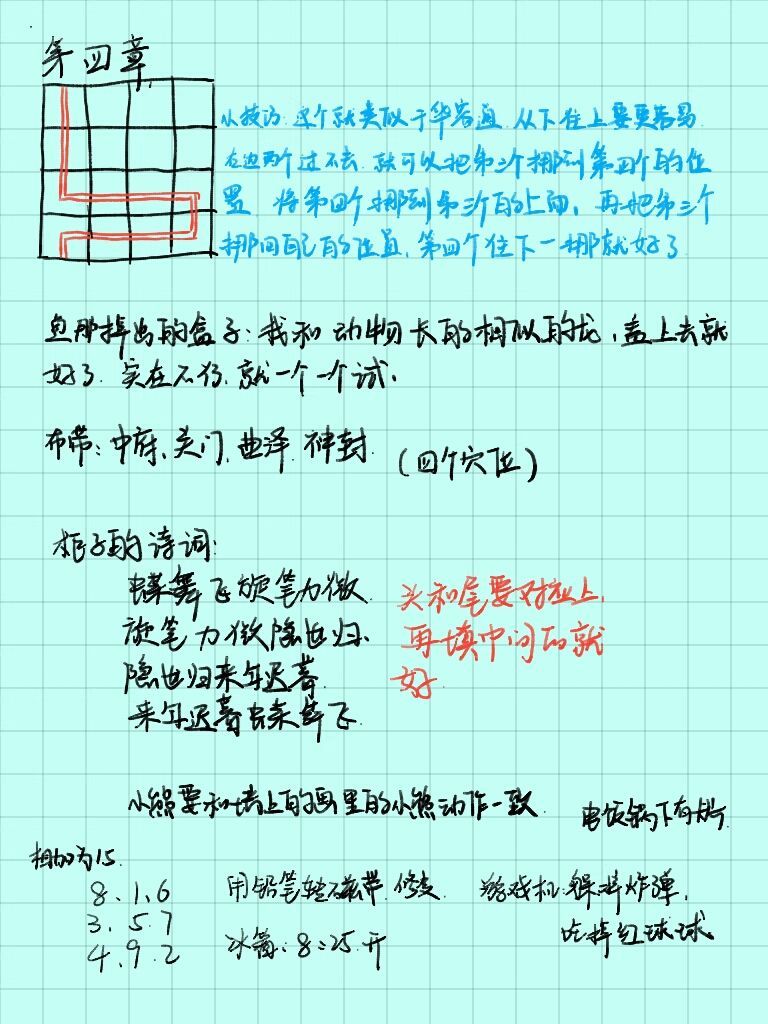 第四章
小技巧 这个就类似于华容道 从下往上要更容易
右边两个过不去 就可以把第三个挪到第四个的位
置 将第四个挪到第三个的上面, 再把第三个
挪回自己的位置, 第四个往下一挪就好了
鱼那掉出的盒子: 我和动物长的相似的龙, 盖上去就
好了. 实在不行, 就一个一个试.
布带: 中府, 关门, 曲泽 神封. (四个穴位)
柜子的诗词:
蝶舞飞旋笔力微
旋笔力微隐世归.
隐世归来年迟暮.
来年迟暮蝶舞飞.
头和尾要对应上,
再填中间的就
好
小熊要和墙上的画里的小熊动作一致.
电饭锅下有
相加为15.
8. 1. 6
3. 5. 7
4. 9. 2
用铅笔转磁带. 修复
冰箱: 8:25 开
游戏机: 躲避炸弹,
吃掉红球球.